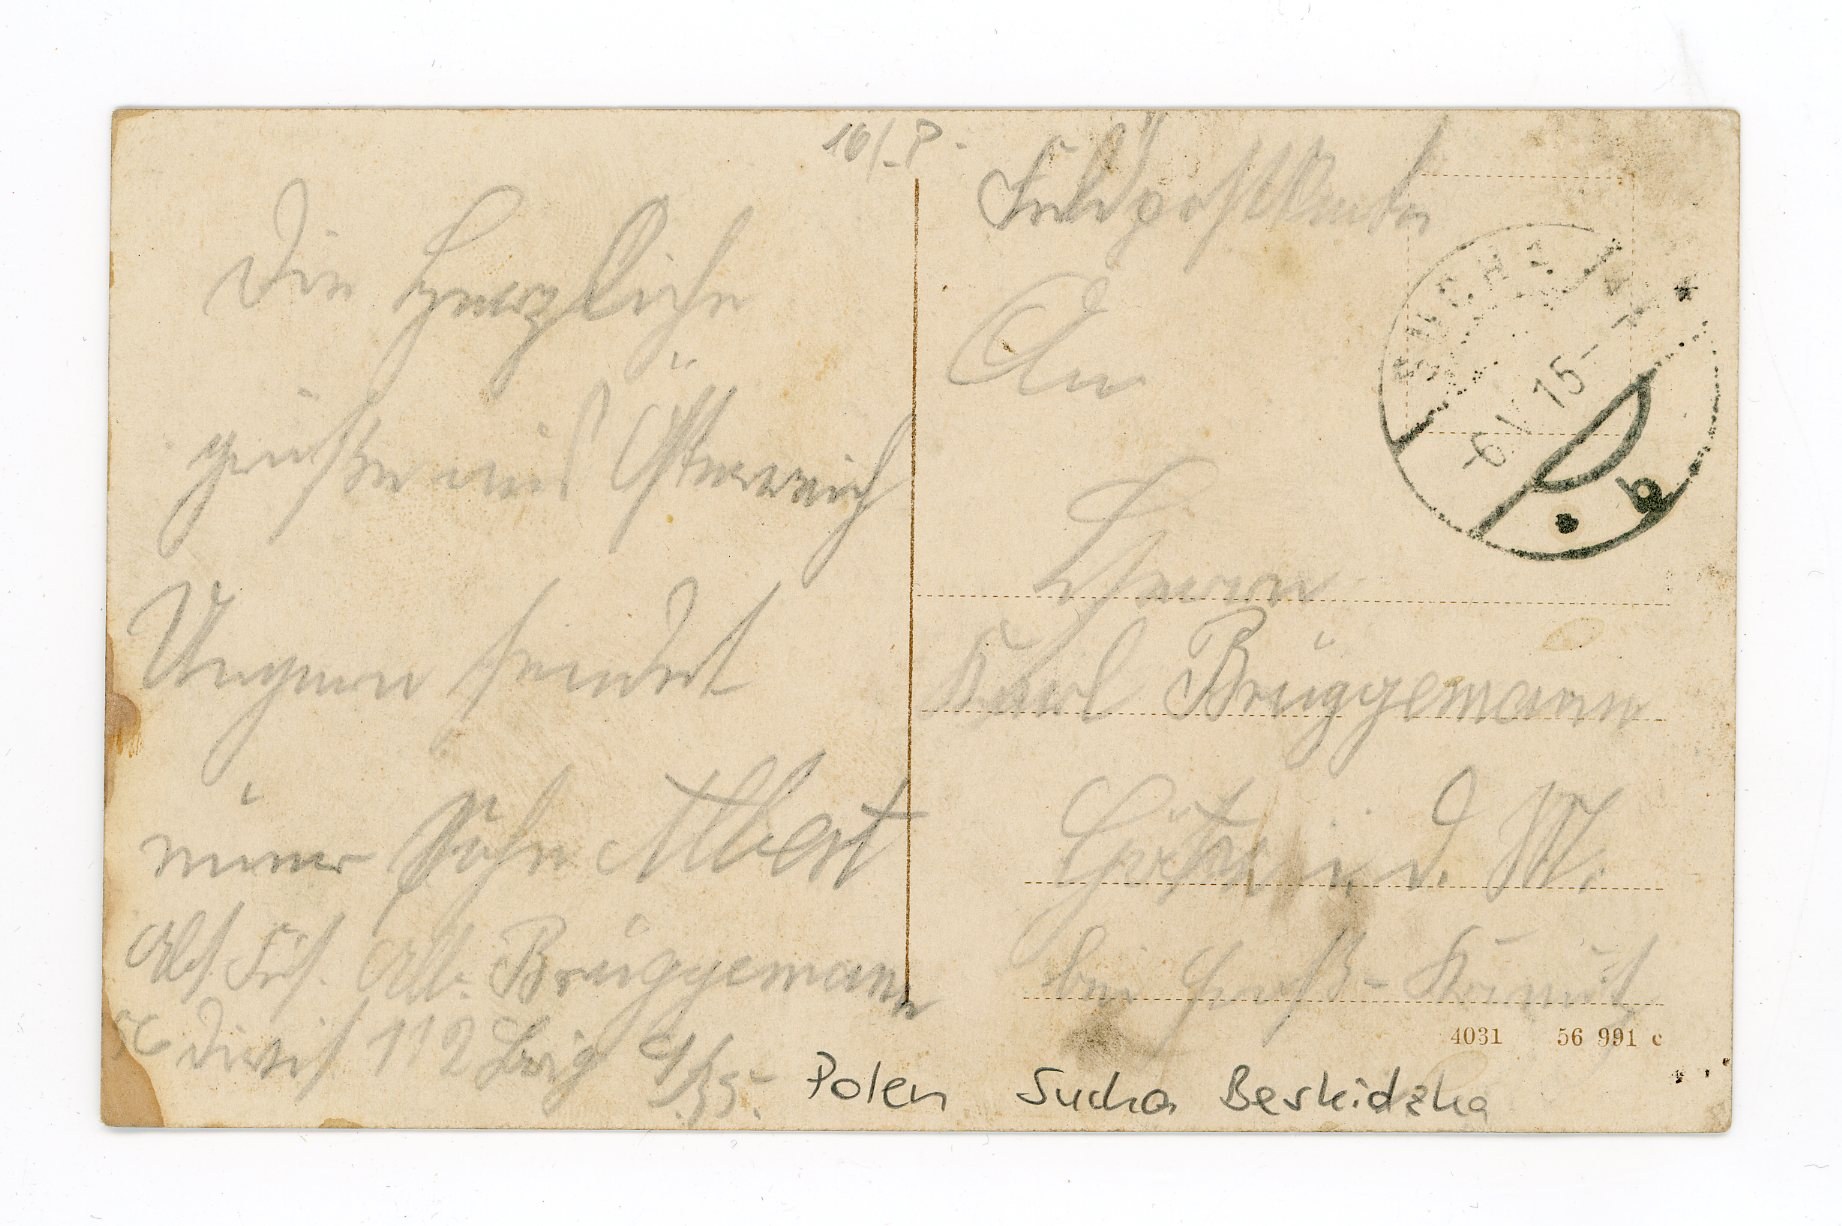 16/-P-
Die Herzliche
grüße aus Österreich
Ungarn sendet
Sohn Albert
Abs. Alb. Brüggemann
Divis 112 Brig
Feldpostkarte
An
Herrn
Karl Brüggemann
i. d. M.
bei Groß-
SUCHA
-6 V 15-
b
4031 56 991 c
Polen Sucha Beskidzka